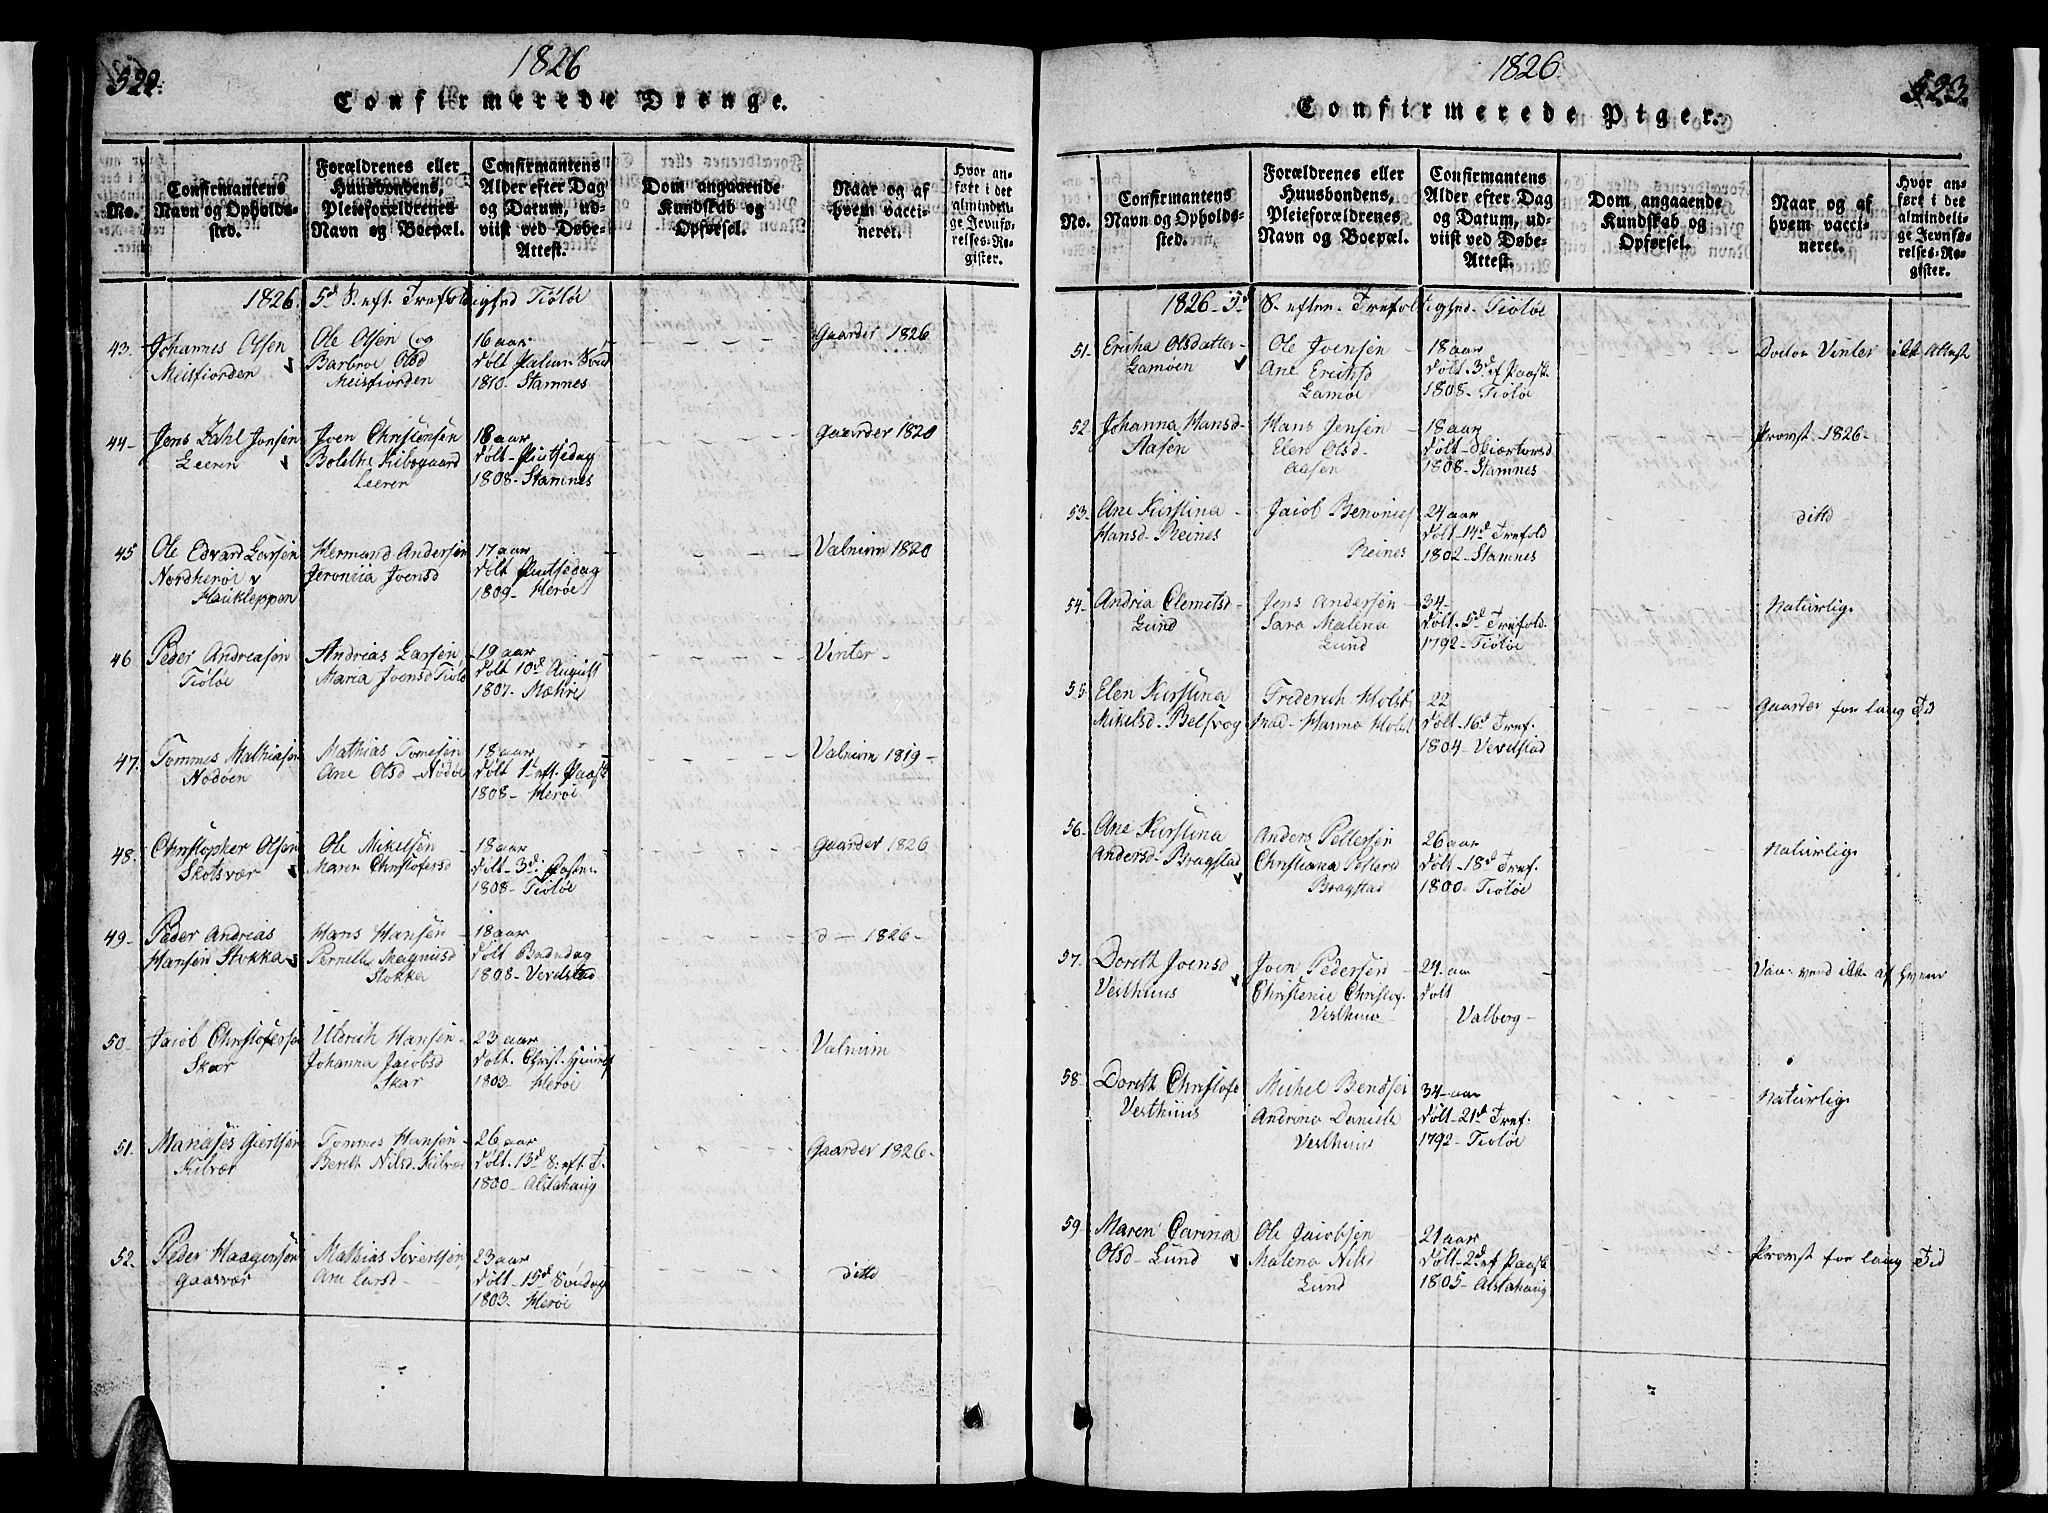 522.
1826
Confirmerede Drenge.
No.
Confirmantens Navn og Opholds-sted.
Forældrenes eller Huusbondens, Pleieforældrenes Navn og Boepæl.
Confirmantens Alder efter Dag og Datum, ud-viist ved Døbe-Attest.
Dom angaaende Kundskab og Opførsel.
Naar og af hvem vacci-neret.
Hvor an-ført i det almindeli-ge Jevnfø-relses-Re-gister.
1826. 5d S. eft. Trefoldighed Tiøtøe
43. Johannes Olsen
Meisfiorden
Ole Olsen og
Barbroe Olsd
Meisfiorden
16 aar
Døbt Palme Sønd
1810. Stamnes
Gaarder 1826
44 Jens Dahl Jonsen
Leeren
Joen Christensen
Bolethe Kibsgaard
Leeren
18 aar
Døbt
1808- Stamnes
Gaarder 1820
45 Ole Edvard Larsen
Nordherøe
Haukleppen
Hermand Andersen
Jeronica Joensd
17 aar
Døbt
1809- Herøe
Valnum 1820
46 Peder Andreasen
Tiøtøe
Andrias Larsen
Maria Joensd Tiøtøe
19 aar
Døbt 10d August
1807. Mæhre
Vinter-
47. Tommes Mathiasen
Nodøen
Mathias Tomesen
Ane Olsd-Nodøe
18 aar
Døbt 1d eft. Paaske
1808- Herøe
Valnum 1819-
48. Christopher Olsen
Skotsvær
Ole Mikelsen
Maren Christofersd
18 aar
Døbt-3d. Fasten
1808- Tiøtøe
Gaarder 1826
49- Peder Andreas
Hansen Stokka
Hans Hansen-
Pernelle Magnusd
Stokka
18 aar
Døbt Bededag
1808- Vevelstad
d- 1826-
50. Jacob Christofersen
Skar
Uldrich Hansen-
Johanna Jacobsd
Skar
23 aar
Døbt. Christ. Himmelf
1803 Herøe
Valnum
51. Manases Giertsen
Kilvær
Tommes Hansen-
Bereth Nilsd Kilvær
26 aar
Døbt. 13d S. eft. T.
1800- Alstahaug
Gaarder 1826-
52. Peder Haagensen
Gaasvær
Mathias Sivertsen
Ane Larsd-
23 aar
Døbt- 15d Søndag
1803. Herøe
ditto
523.
1826.
Confirmerede Piger.
No.
Confirmantens Navn og Opholds-sted.
Forældrenes eller Huusbondens, Pleieforældrenes Navn og Boepæl.
Confirmantens Alder efter Dag og Datum, ud-viist ved Døbe-Attest.
Dom angaaende Kundskab og Opførsel.
Naar og af hvem vacci-neret.
Hvor an-ført i det almindeli-ge Jevnfø-relses-Re-gister.
1826-5d S. efter Trefoldighed-Tiøtøe
51- Ericha Olsdatter
Lamøen
Ole Joensen
Ane Erichsd
Lamøe
18 aar
Døbt-3d ef Paask
1808- Tiøtøe
Doctor Vinter Attest
52. Johanna Hansd-
Aasen
Hans Jensen
Elen Olsd-
Aasen
18 aar
Døbt- Skiærtorsd
1808- Stamnes
Provst-1826-
53. Ane Kirstina
Hansd-Reines
Jacob Benonies
Reines
24 aar
Døbt-14d Trefold
1802- Stamnes
ditto
54. Andria Clemetsd-
Lund
Jens Andersen
Sara Malena
Lund
34-
Døbt-5d Trefold.
1792-Tiøtøe
Naturlig.
55. Elen Kirstina
Mikelsd- Belsvog
Friderich Holst
Mad- Hanna Holst
22
Døbt-16d Tref.
1804- Vevelstad
Gaarder for lang Tid
56- Ane Kirstina
Andersd-Bragstad
Anders Pettersen
Christiana Petters
Bragstad
26 aar
Døbt-18d Tref.
1800-Tiøtøe
Naturlig.
57. Doreth Joensd
Vesthuus
Joen Pedersen
Christenie Christof.
Vesthuus-
24. aar
Døbt
Valberg-
ikke af hvem
58- Doreth Christofe
Vesthuus
Michel Bendser
Andrina Daniels
Vesthuus
34-aar
Døbt-21d Tref.
1792-Tiøtøe
Naturlig.
59- Maren Carina
Olsd-Lund
Ole Jacobsen
Malena Nilsd
Lund
21 aar
Døbt-2d ef Paask
1805- Alstahaug
Provst for lang Tid